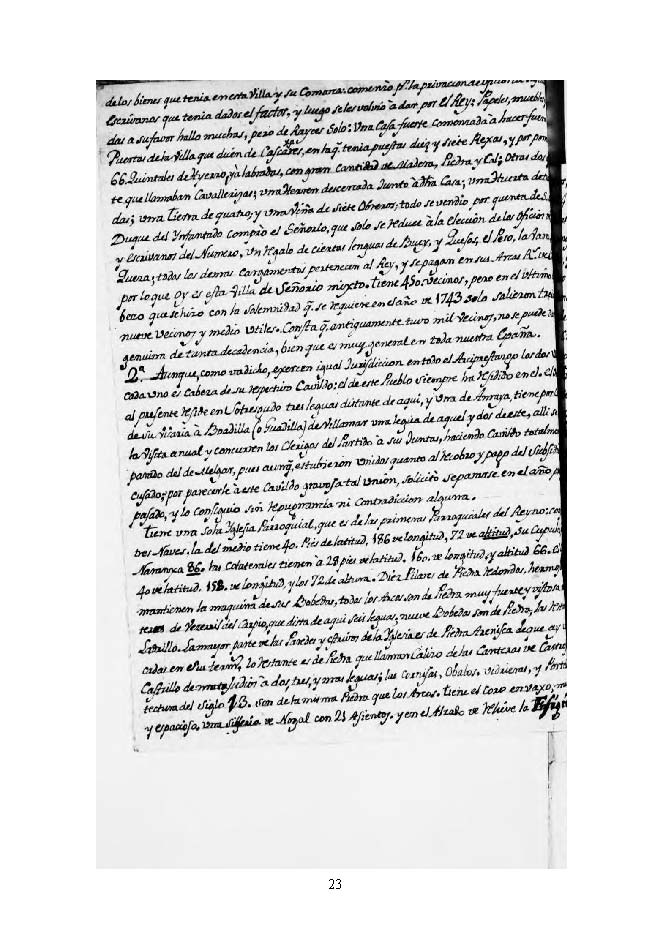 de los bienes que tenia en esta Villa y su Comarca: comenzo pr. la privacion de
Escrivanos que tenia dados el factor, y luego se les volvio a dar, por el Rey: Papeles, muebles,
das a su favor hallo muchas, pero de Rayces Solo: Vna Casa fuerte Comenzada a hacer
Puertas de la Villa que dicen de Cascares, en la q. tenia puestas diez y siete Rexas, y por pon
66. Quintales de Hyerro, ya labrados, con gran Cantidad de Madera, Piedra y Cal; Otras dos
te que llamaban Cavallerizas; vna Herren descercada Junto a dha Casa; vna Huerta de
das; vna Tierra de quatro, y vna Viña de siete Obreros; todo se vendio por quenta de S.
Duque del Ynfantado Compro el Señorio, que solo se reduce a la Elección de los Oficios
y Escrivanos del Numero, Vn regalo de ciertas lenguas de Buey, y Quesos, el Peso, la
quera; todas las demas Cargamentos pertenecen al Rey, y se pagan en sus Arcas Rs.
por lo que oy es esta Villa de Señorio mixto. tiene 450. vecinos, pero en el vltimo
bezo que se hizo con la Solemnidad q. se requiere en el año de 1743 solo salieron
nueve vecinos y medio vtiles. Consta q. antiguamente tuvo mil vecinos, no se puede
genuina de tanta decadencia, bien que es muy general en toda nuestra España.
2ª. Aunque, como va dicho, exercen igual Jurisdiccion en todo el Arciprestazgo los dos
cada vno es Cabeza de su respectivo Cavildo: el de este Pueblo siempre ha residido en el. el
al presente reside en Sotresgudo tres leguas distante de aqui, y otra de Amaya, tiene por
de su Vicaria à Boadilla (o Guadilla) de Villamar vna legua de aquel y dos de este, alli se
la Visita anual y concurren los Clerigos del Partido a sus Juntas, haciendo Cavildo totalmen
parado del de Melgar, pues aunq. estubieron vnidos quanto al recobro y pago del Subsidio
cusado; por parecerle a este Cavildo gravosa tal vnion, solicitò separarse en el año
pasado, y lo consiguio sin repugnancia ni Contradiccion alguna.
Tiene vna sola Yglesia Parroquial, que es de las primeras Parroquiales del Reyno:
tres Naves. la del medio tiene 40. Pies de latitud, 186 de longitud, 72 de altitud, su
Naranxa 86. las Colaterales tienen à 28 pies de latitud. 160. de longitud, y altitud 66.
40 de latitud. 158. de longitud, y los 72 de altura. Diez Pilares de Piedra redondos, hermos
mantienen la maquina de sus Bobedas, todos los Arcos son de Piedra muy fuerte y vistosa
de Vezerril del Carpio, que dista de aqui seis leguas, nueve Bobedas son de Piedra, las
Ladrillo. La mayor parte de las Paredes y estrivos de la Yglesia es de Piedra Arenisca de que ay
cadas en su termino, lo restante es de Piedra que llaman Calizo de las Canteras de
Castrillo de à dos, tres, y mas leguas; las Cornisas, Obalos. vidrieras, y
tectura del siglo 13. son de la misma Piedra que los Arcos. tiene el Coro en vaxo,
y espacioso. vna silleria de Nogal con 21 Asientos. y en el Alzado de relieve la
23